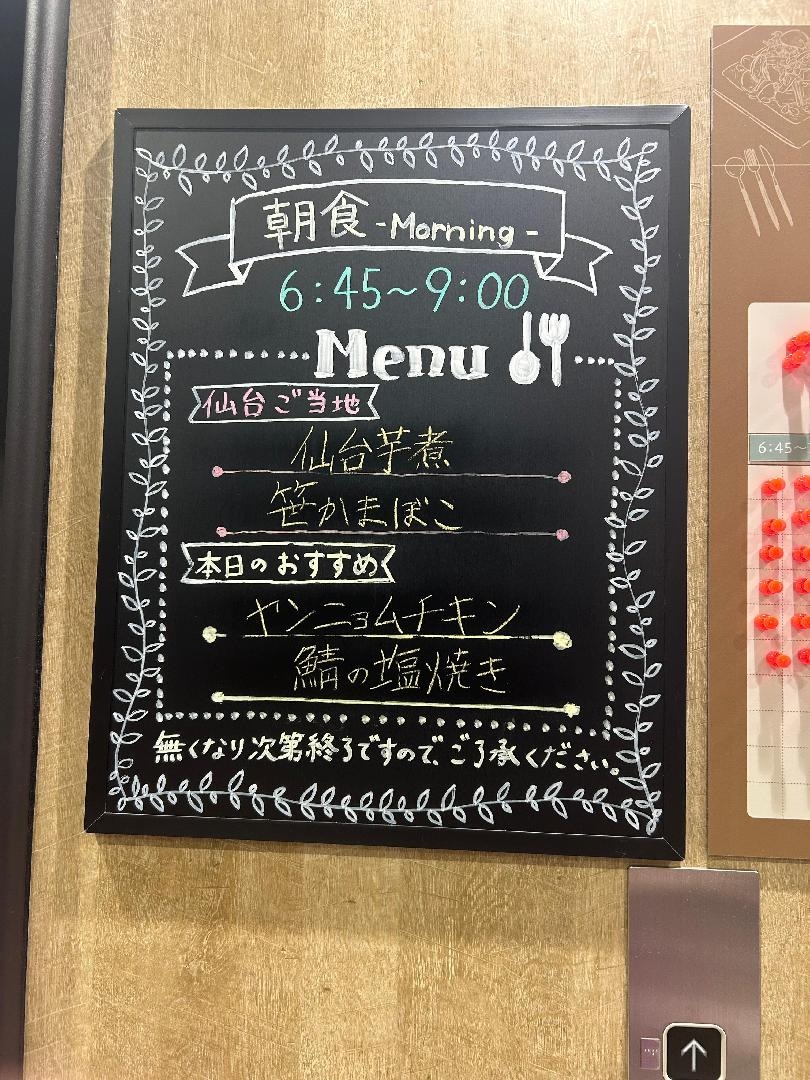 朝食 -Morning-
6:45~9:00
Menu
仙台ご当地
仙台芋煮
笹かまぼこ
本日のおすすめ
ヤンニョムチキン
鯖の塩焼き
無くなり次第終了ですので、ご了承ください。
6:45~